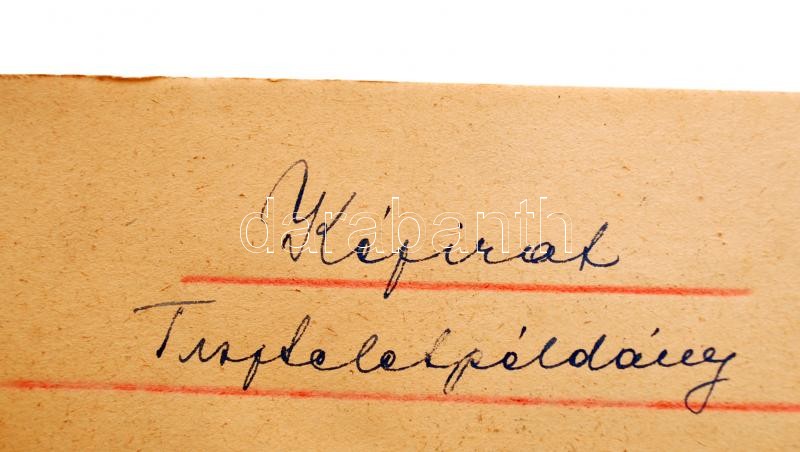 Kézirat
Tiszteletpéldány
darabanth